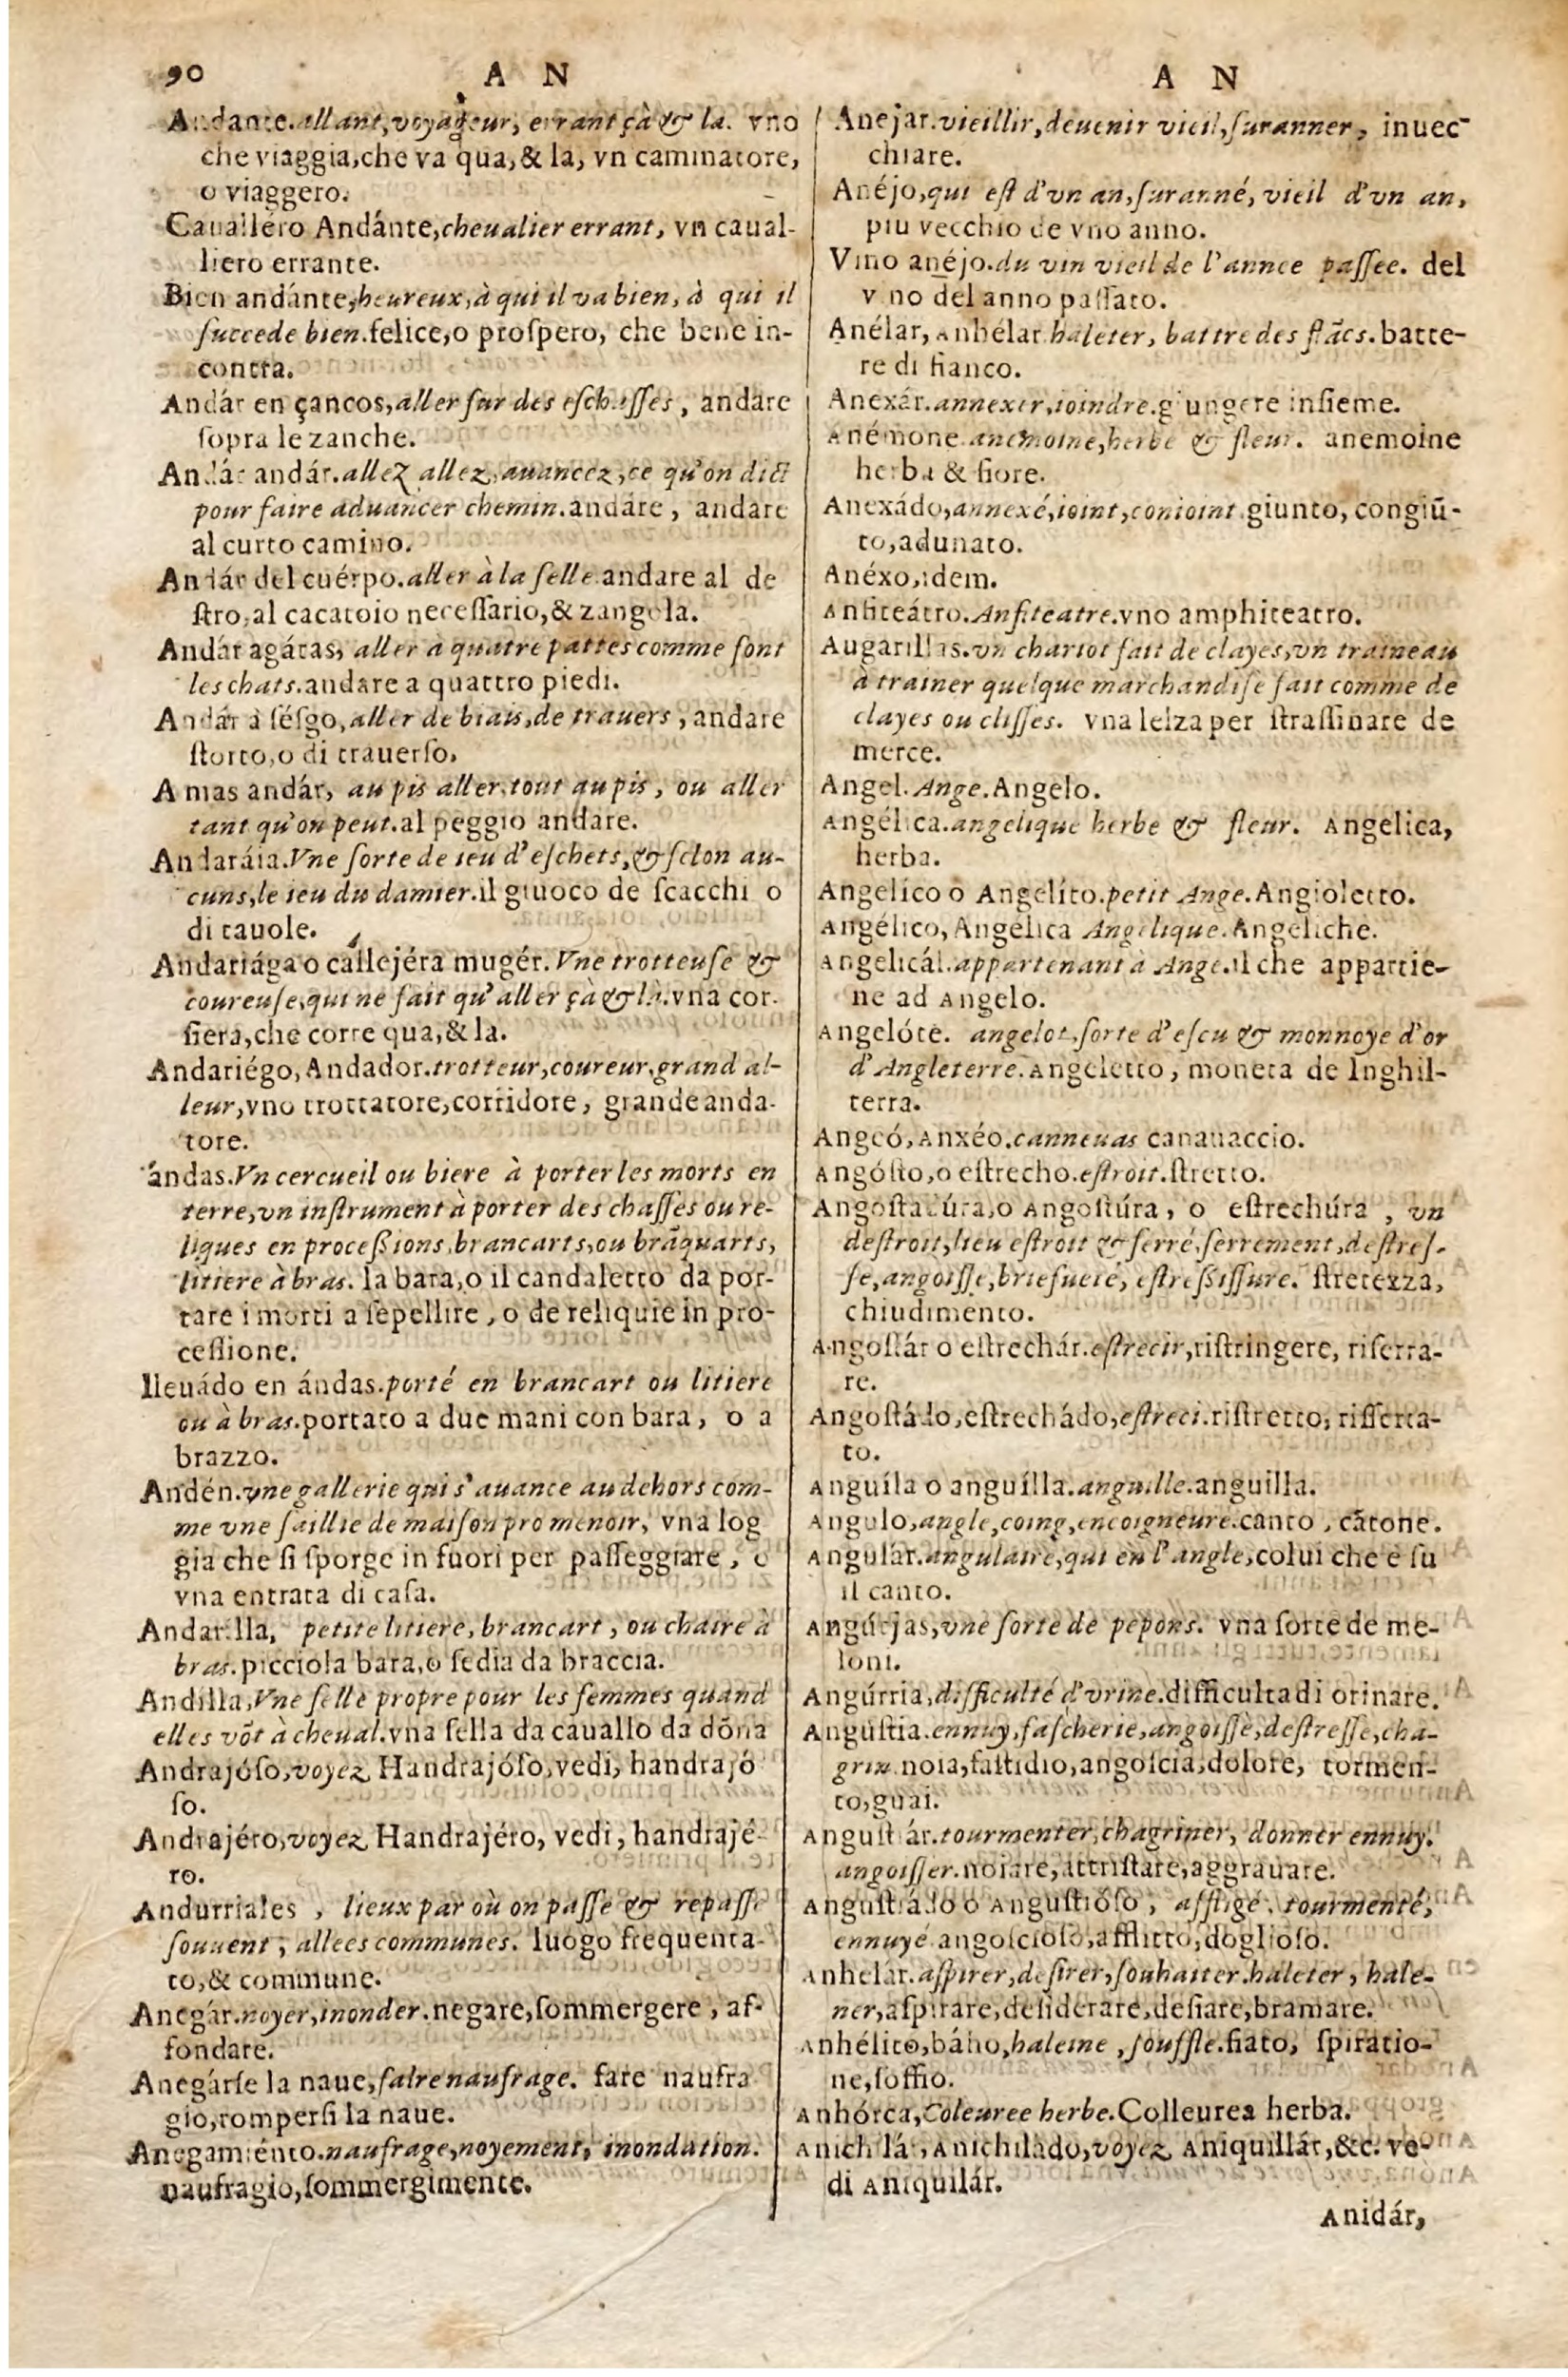 90 A N
Andante.allant,voyageur, errant çà & la. vno
che viaggia,che va qua,& la, vn caminatore,
o viaggero.
Caualléro Andánte,cheualier errant, vn caual-
liero errante.
Bien andánte,heureux,à qui il va bien, à qui il
ſuccede bien.felice,o proſpero, che bene in-
contra.
Andár en çancos,aller ſur des eſchaſſes, andare
ſopra le zanche.
Andár andár.allez allez,auancez,ce qu'on dict
pour faire aduancer chemin.andare, andare
al curto camino.
Andár del cuérpo.aller à la ſelle.andare al de
ſtro,al cacatoio neceſſario,& zangola.
Andár agátas, aller a quatre pattes comme font
les chats.andare a quattro piedi.
Andár à ſéſgo,aller de biais,de trauers, andare
ſtorto,o di trauerſo.
A mas andár, au pis aller,tout au pis, ou aller
tant qu'on peut.al peggio andare.
Andaráia.Vne ſorte de ieu d'eſchets,& ſelon au-
cuns,le ieu du damier.il giuoco de ſcacchi o
di tauole.
Andariága o callejéra mugér. Vne trotteuſe &
coureuſe,qui ne fait qu'aller çà & là.vna cor-
ſiera,che corre qua,& la.
Andariégo, Andador.trotteur,coureur,grand al-
leur,vno trottatore,corridore, grande anda-
tore.
ándas.Vn cercueil ou biere à porter les morts en
terre,vn inſtrument à porter des chaſſes ou re-
liques en proceſſions,brancarts,ou brãquarts,
litiere à bras. la bara,o il candaletto da por-
tare i morti a ſepellire, o de reliquie in pro-
ceſſione.
lleuádo en ándas.porté en brancart ou litiere
ou à bras.portato a due mani con bara, o a
brazzo.
Andén.vne gallerie qui s'auance au dehors com-
me vne ſaillie de maiſon promenoir, vna log
gia che ſi ſporge in fuori per paſſeggiare, o
vna entrata di caſa.
Andarilla, petite litiere, brancart, ou chaire à
bras.picciola bara,o ſedia da braccia.
Andilla,Vne ſelle propre pour les femmes quand
elles võt à cheual.vna ſella da cauallo da dõna
Andrajóſo,voyez Handrajóſo,vedi, handrajó
ſo.
Andrajéro,voyez Handrajéro, vedi, handrajé-
ro.
Andurriales, lieux par où on paſſe & repaſſe
ſouuent, allees communes. luogo frequenta-
to,& commune.
Anegár.noyer,inonder.negare,ſommergere, af-
fondare.
Anegárſe la naue,faire naufrage. fare naufra
gio,romperſi la naue.
Anegamiénto.naufrage,noyement, inondation.
naufragio,ſommergimente.
A N
Anejar.vieillir,deuenir vieil,ſuranner, inuec-
chiare.
Anéjo,qui eſt d'vn an,ſuranné, vieil d'vn an,
piu vecchio de vno anno.
Vino anéjo.du vin vieil de l'annee paſſee. del
vino del anno paſſato.
Anélar, Anhélar.haleter, battre des flãcs.batte-
re di fianco.
Anexár.annexer,ioindre.giungere inſieme.
Anémone.anemoine,herbe & fleur. anemoine
herba & fiore.
Anexádo,annexé,ioint,conioint.giunto, congiũ-
to,adunato.
Anéxo,idem.
Anfiteátro.Anfiteatre.vno amphiteatro.
Augarillas.vn chariot fait de clayes,vn traineau
à trainer quelque marchandiſe fait comme de
clayes ou cliſſes. vna lelza per ſtraſſinare de
merce.
Angel.Ange.Angelo.
Angélica.angelique herbe & fleur. Angelica,
herba.
Angelíco o Angelíto.petit Ange.Angioletto.
Angélico, Angélica Angelique.Angeliche.
Angelicál.appartenant à Ange.il che appartie-
ne ad Angelo.
Angelóte. angelot,ſorte d'eſcu & monnoye d'or
d'Angleterre.Angeletto, moneta de Inghil-
terra.
Angeó, Anxéo.canneuas canauaccio.
Angóſto,o eſtrecho.eſtroit.ſtretto.
Angoſtatúra,o Angoſtúra, o eſtrechúra, vn
deſtroit,lieu eſtroit & ſerré,ſerrement,deſtreſ-
ſe,angoiſſe,briefueté, eſtreſſiſſure. ſtretezza,
chiudimento.
Angoſtár o eſtrechár.eſtrecir,riſtringere, riſerra-
re.
Angoſtádo,eſtrechádo,eſtreci.riſtretto, riſſerra-
to.
Anguíla o anguílla.anguille.anguilla.
Angulo,angle,coing,encoigneure.canto, cãtone.
Angulár.angulaire,qui en l'angle,colui che è ſu
il canto.
Angúrjas,vne ſorte de pepons. vna ſorte de me-
loni.
Angúrria,difficulté d'vrine.difficulta di orinare.
Angúſtia.ennuy,faſcherie,angoiſſe,deſtreſſe,cha-
grin.noia,faſtidio,angoſcia,dolore, tormen-
to,guai.
Anguſtiár.tourmenter,chagriner, donner ennuy.
angoiſſer.noiare,attriſtare,aggrauare.
Anguſtiádo o Anguſtióſo, affligé, tourmenté,
ennuyé.angoſcioſo,afflitto,doglioſo.
Anhelár.aſpirer,deſirer,ſouhaiter.haleter, hale-
ner,aſpirare,deſiderare,deſiare,bramare.
Anhélito,báho,haleine, ſouffle.fiato, ſpiratio-
ne,ſoffio.
Anhórca,Coleuree herbe.Colleurea herba.
Anichilár, Anichilado,voyez Aniquillár,&c. ve-
di Aniquilár.
Anidár,